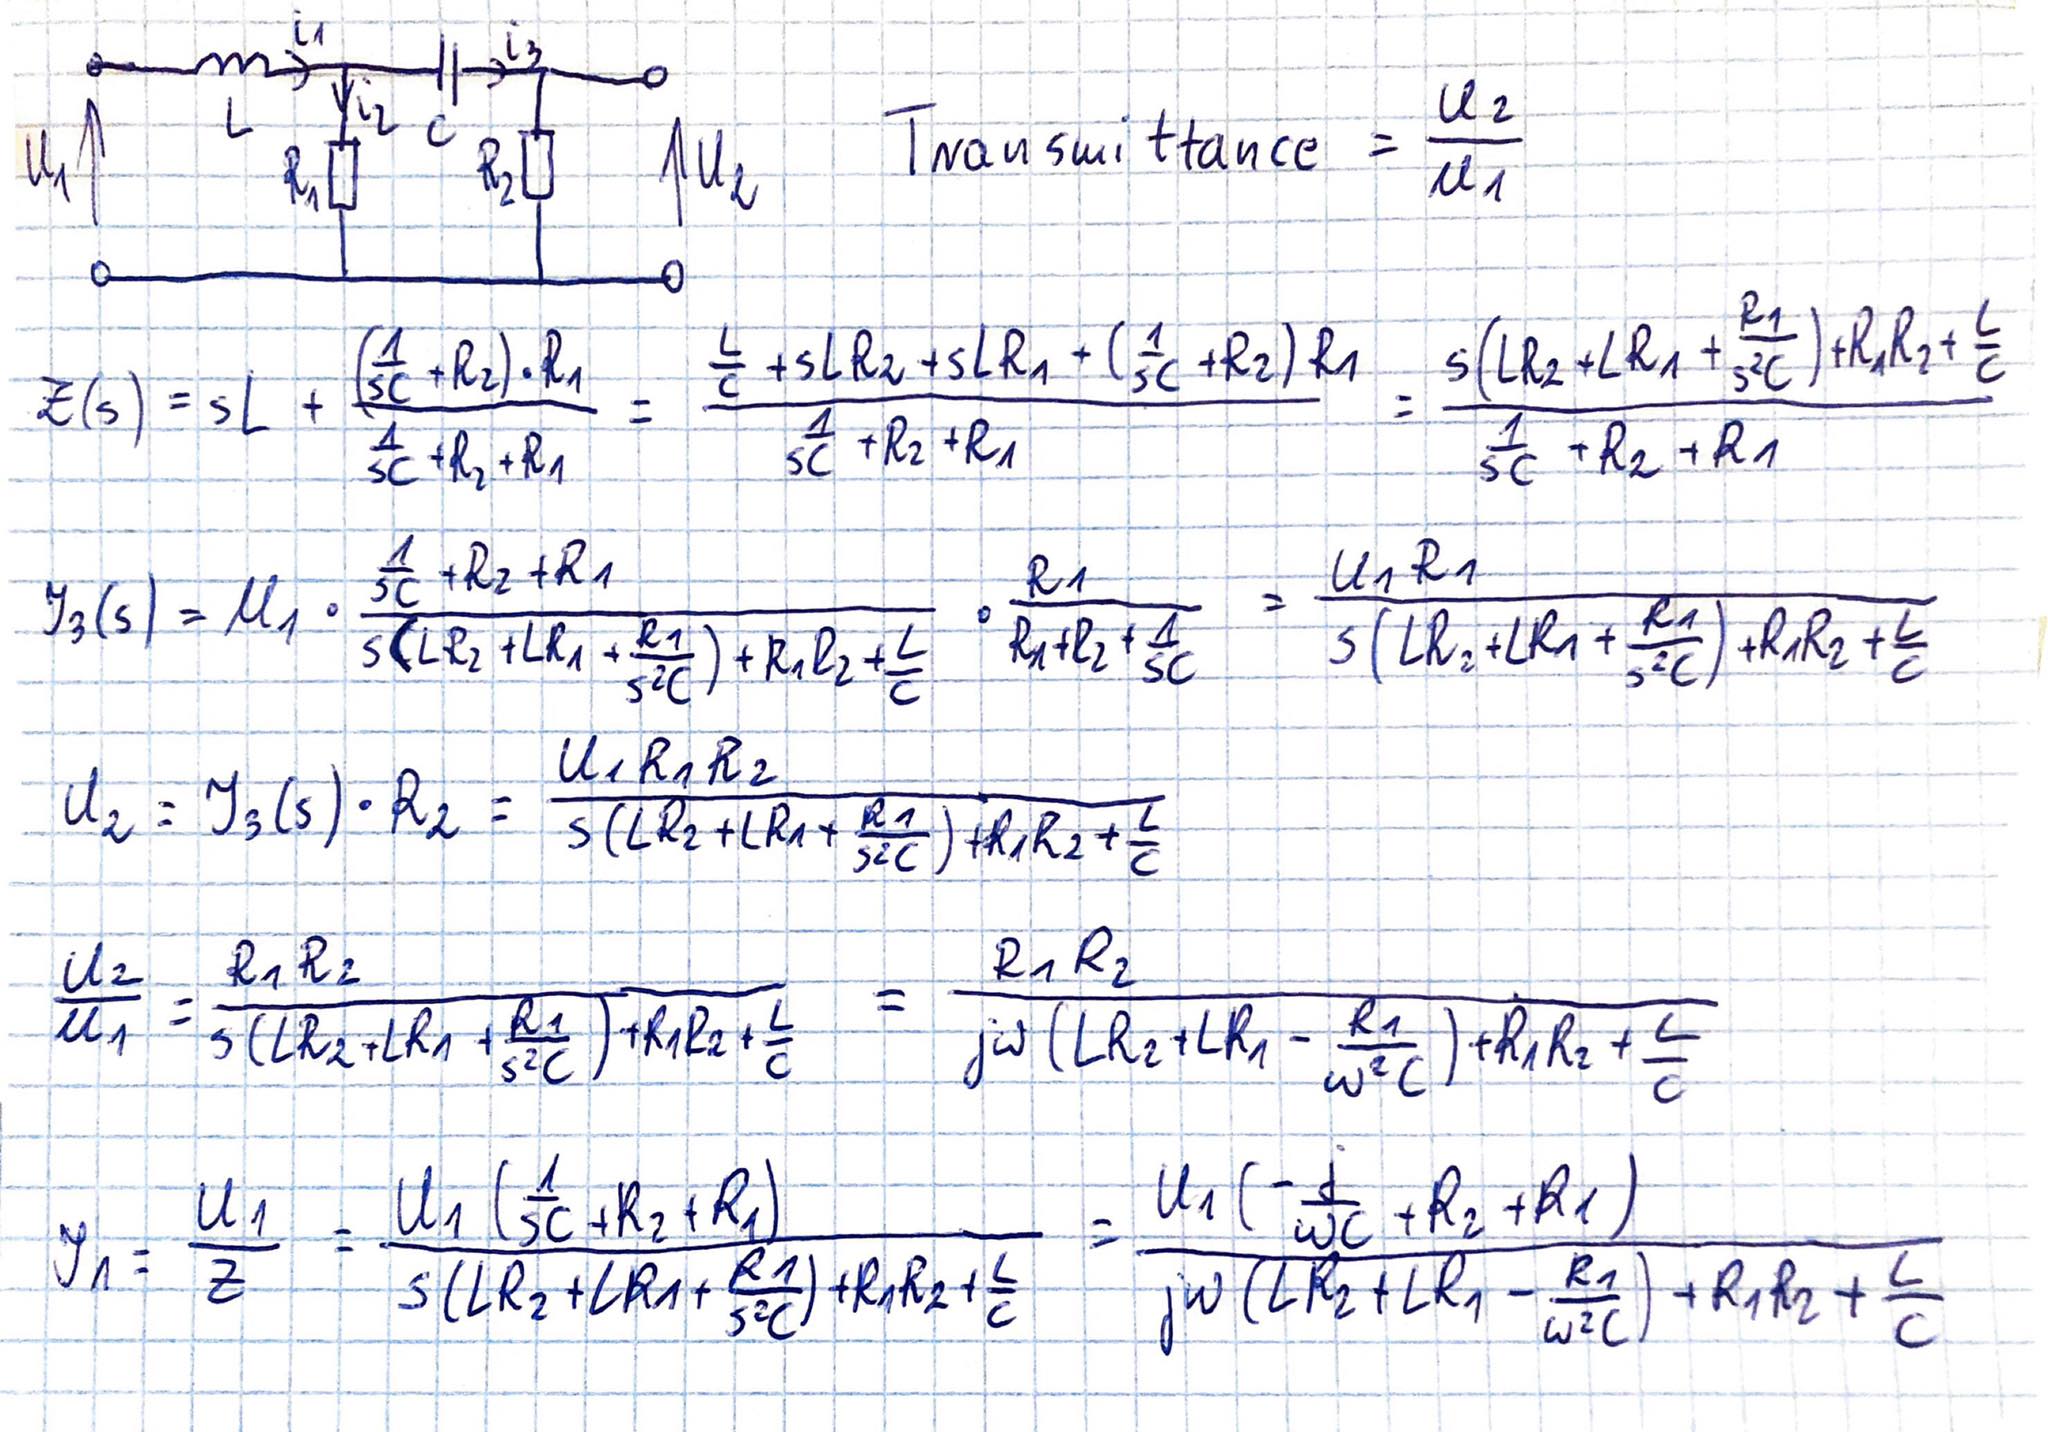 i1 i3
U1 L i2 C R1 R2 U2
Transmittance = U2/U1
Z(s) = sL + ((1/sC + R2)·R1)/(1/sC + R2 + R1) = (L/C + sLR2 + sLR1 + (1/sC + R2)R1)/(1/sC + R2 + R1) = (s(LR2 + LR1 + R1/s²C) + R1R2 + L/C)/(1/sC + R2 + R1)
I3(s) = U1 · (1/sC + R2 + R1)/(s(LR2 + LR1 + R1/s²C) + R1R2 + L/C) · R1/(R1 + R2 + 1/sC) = U1R1/(s(LR2 + LR1 + R1/s²C) + R1R2 + L/C)
U2 = I3(s) · R2 = U1R1R2/(s(LR2 + LR1 + R1/s²C) + R1R2 + L/C)
U2/U1 = R1R2/(s(LR2 + LR1 + R1/s²C) + R1R2 + L/C) = R1R2/(jω(LR2 + LR1 - R1/ω²C) + R1R2 + L/C)
I1 = U1/Z = U1(1/sC + R2 + R1)/(s(LR2 + LR1 + R1/s²C) + R1R2 + L/C) = U1(-j/ωC + R2 + R1)/(jω(LR2 + LR1 - R1/ω²C) + R1R2 + L/C)